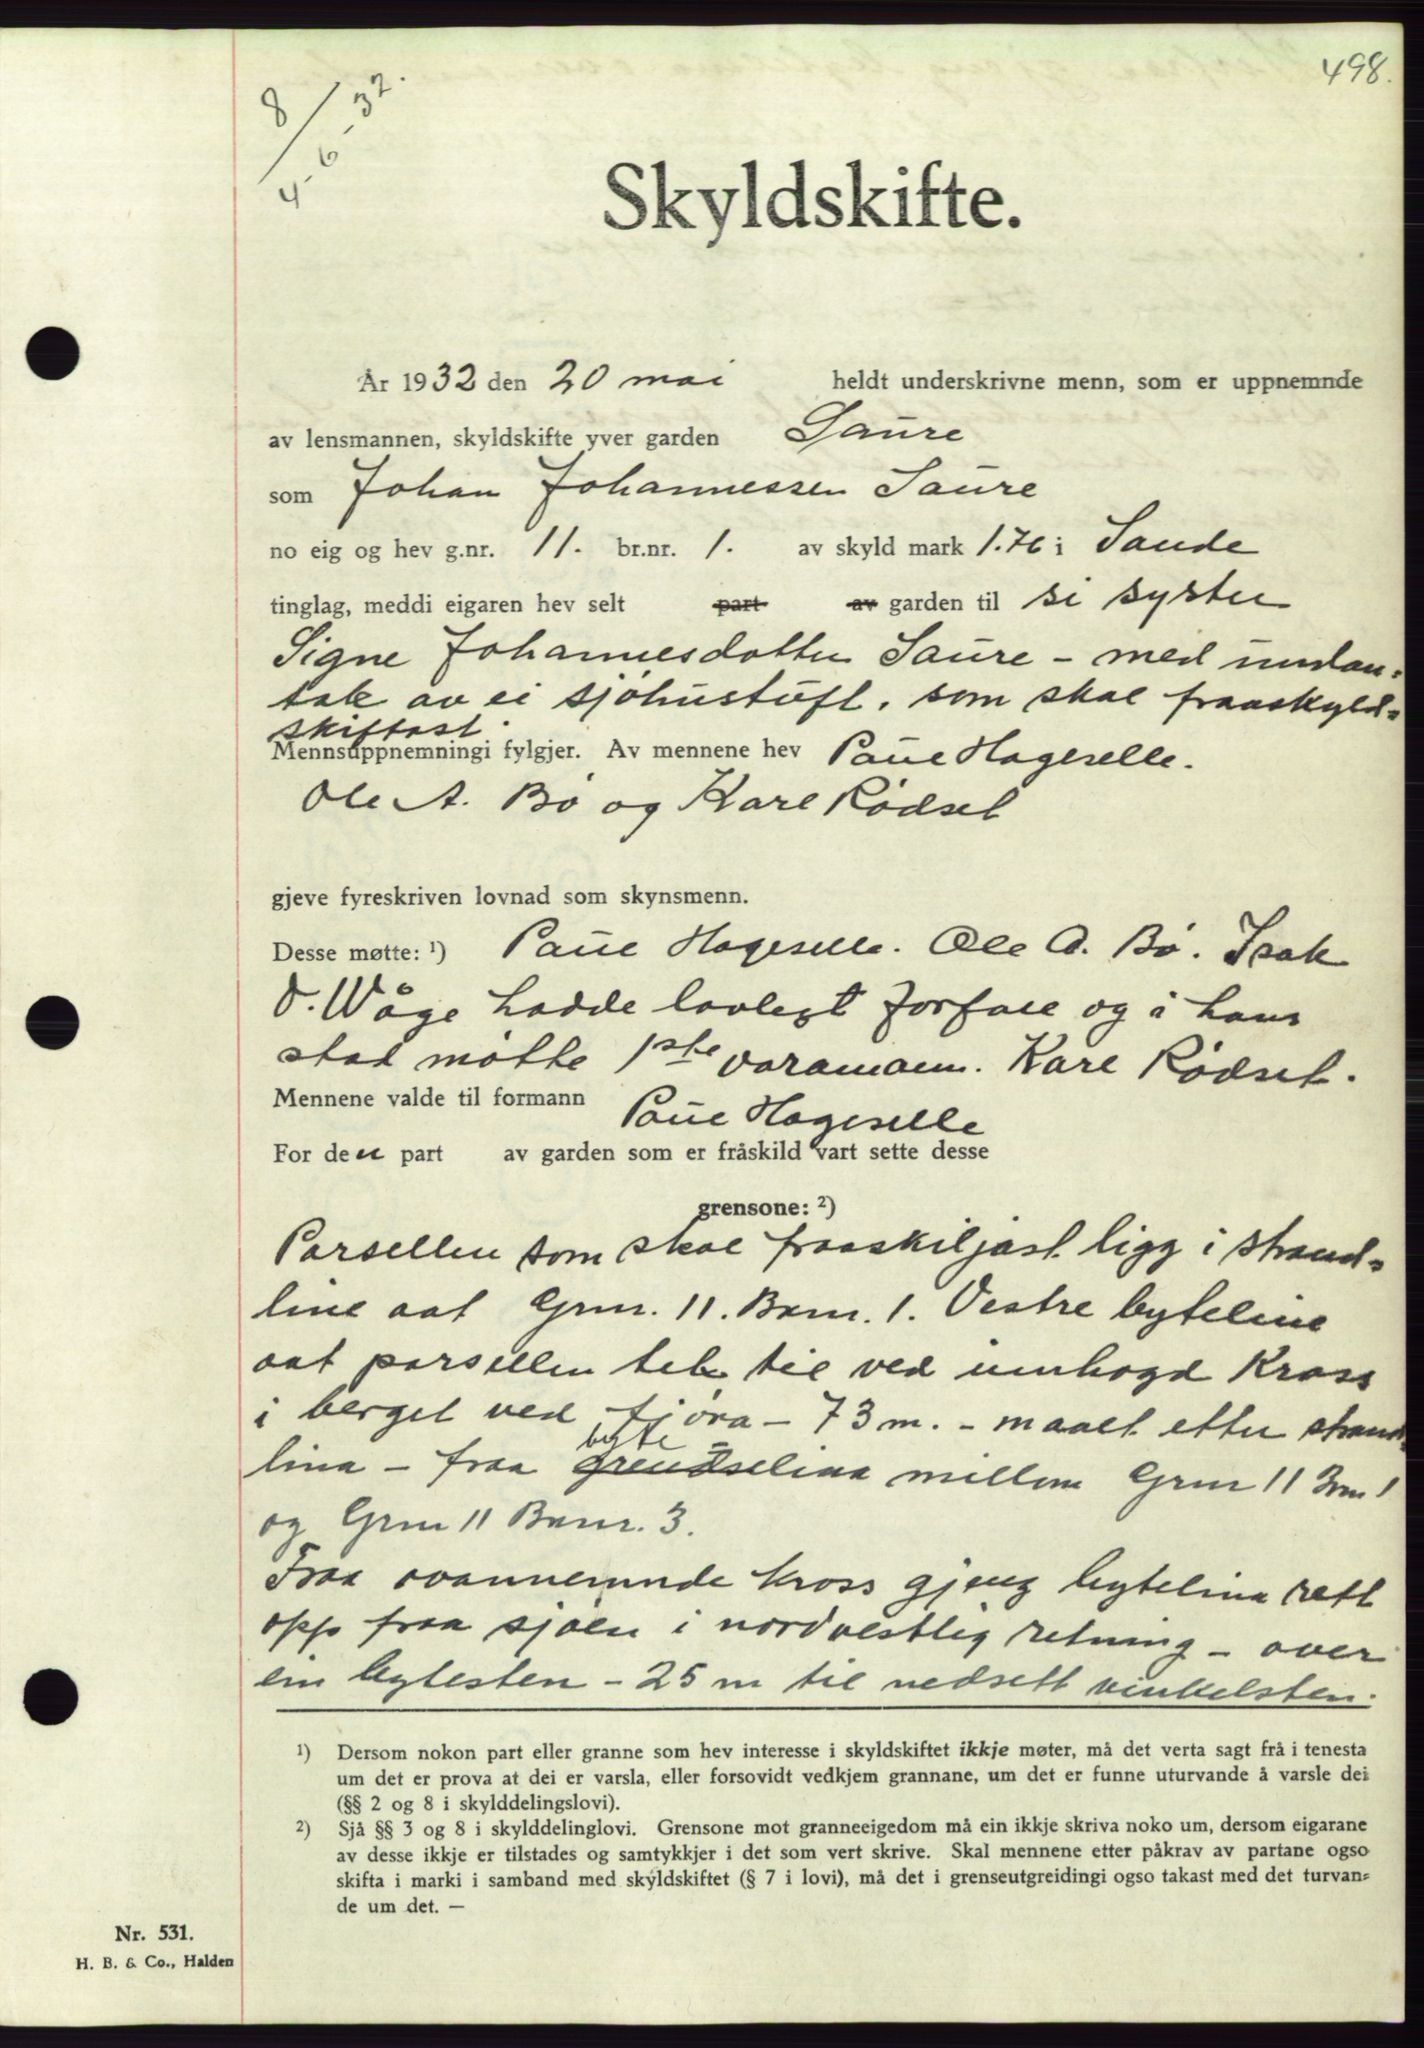 498.
8/4-6-32.
Skyldskifte.
År 1932 den 20 mai heldt underskrivne menn, som er uppnemnde
av lensmannen, skyldskifte yver garden Saure
som Johan Johannessen Saure
no eig og hev g.nr. 11. br.nr. 1. av skyld mark 1.76 i Sande
tinglag, meddi eigaren hev selt part av garden til si syster
Signe Johannesdotter Saure - med undan-
tak av ei sjøhustuft, som skal fraaskyld-
skiftast.
Mennsuppnemningi fylgjer. Av mennene hev Paul Hageselle.
Ole A. Bø og Karl Rødset
gjeve fyreskriven lovnad som skynsmenn.
Desse møtte: 1) Paul Hageselle. Ole A. Bø. Isak
O. Våge hadde lovlegt forfall og i hans
stad møtte 1ste varamann. Karl Rødset.
Mennene valde til formann Paul Hageselle
For den part av garden som er fråskild vart sette desse
grensone: 2)
Parsellen som skal fraaskiljast ligg i strand-
line aat Grnr. 11. Brnr. 1. Vestre byteline
aat parsellen tek til ved innhogd Kross
i berget ved fjøra - 73 m. - maalt etter strand-
lina - fraa grendselina byte- millom Grnr 11 Brnr 1
og Grnr 11 Brnr. 3.
Fraa ovannemnde kross gjeng bytelina rett
opp fraa sjøen i nordvestlig retning - over
ein bytesten - 25 m til nedsett vinkelsten.
1) Dersom nokon part eller granne som hev interesse i skyldskiftet ikkje møter, må det verta sagt frå i tenesta
um det er prova at dei er varsla, eller forsovidt vedkjem grannane, um det er funne uturvande å varsle dei
(§§ 2 og 8 i skylddelingslovi).
2) Sjå §§ 3 og 8 i skylddelinglovi. Grensone mot granneeigedom må ein ikkje skriva noko um, dersom eigarane
av desse ikkje er tilstades og samtykkjer i det som vert skrive. Skal mennene etter påkrav av partane ogso
skifta i marki i samband med skyldskiftet (§ 7 i lovi), må det i grenseutgreidingi ogso takast med det turvan-
de um det. —
Nr. 531.
H. B. & Co., Halden